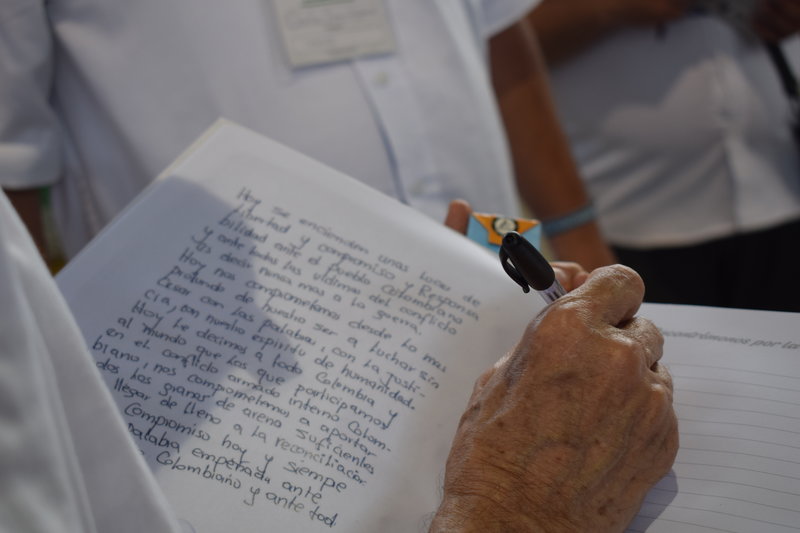 Hoy se encienden unas luces de
libertad y compromiso y Responsa
bilidad ante el pueblo Colombiano
y ante todas las victimas del conflicto
Es decir nunca mas a la guerra,
Hoy nos comprometemos desde lo mas
profundo de nuestro ser a luchar sin
Cesar con las palabras, con la justi-
Cia, con nuestro espiritu de humanidad.
Hoy le decimos a toda Colombia y
al mundo que los que participamos
en el conflicto armado interno Colom-
biano, nos comprometemos a aportar
dos los granos de arena suficientes
llegar de lleno a la reconciliación
Compromiso hoy y siempre
palabra empeñada ante
Colombiano y ante tod
contrémonos por la